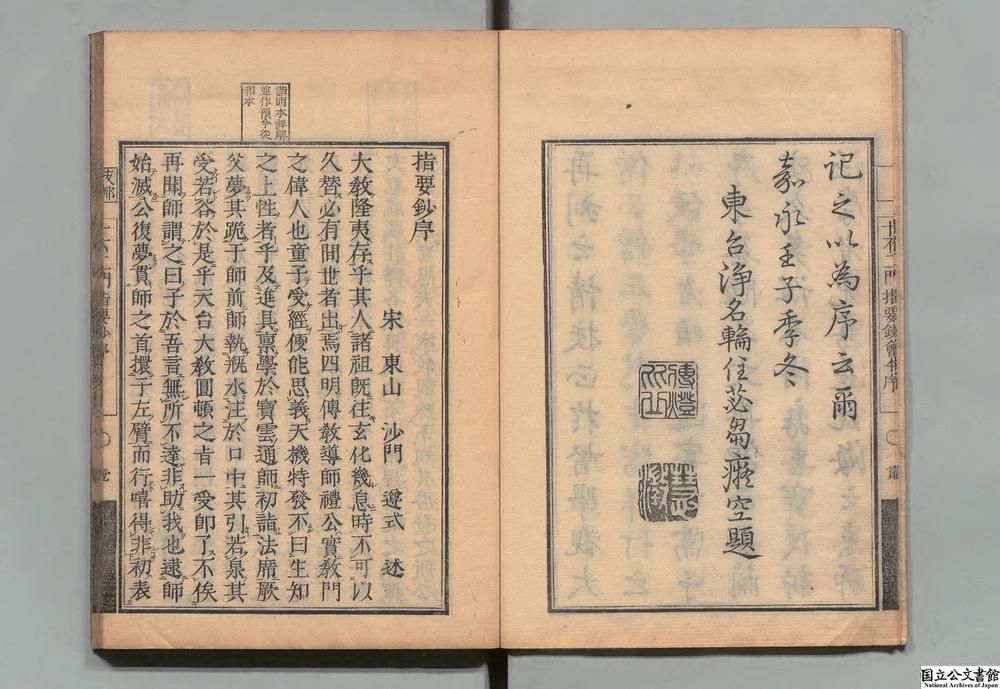 記之以為序云爾
嘉永壬子季冬
東台浄名輪住苾芻癡空題
十不二門指要鈔會本序
指要鈔序
宋 東山 沙門 遵式 述
大教隆夷存乎其人諸祖既往玄化幾息時不可以
久替必有間世者出焉四明傳教導師禮公實教門
之偉人也童子受經便能思義天機特發不曰生知
之上性者乎及進具稟學於寶雲通師初詣法席厥
父夢其跪于師前師執瓶水注於口中其引若泉其
受若谷於是乎天台大教圓頓之旨一受即了不俟
再聞師謂之曰子於吾言無所不達非助我也逮師
始滅公復夢貫師之首擐于左臂而行嘻得非初表
國立公文書館
National Archives of Japan